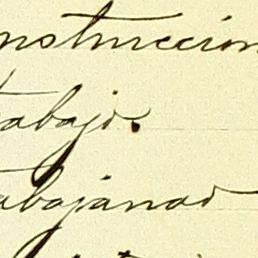 nstruccion
trabajo.
abajánao